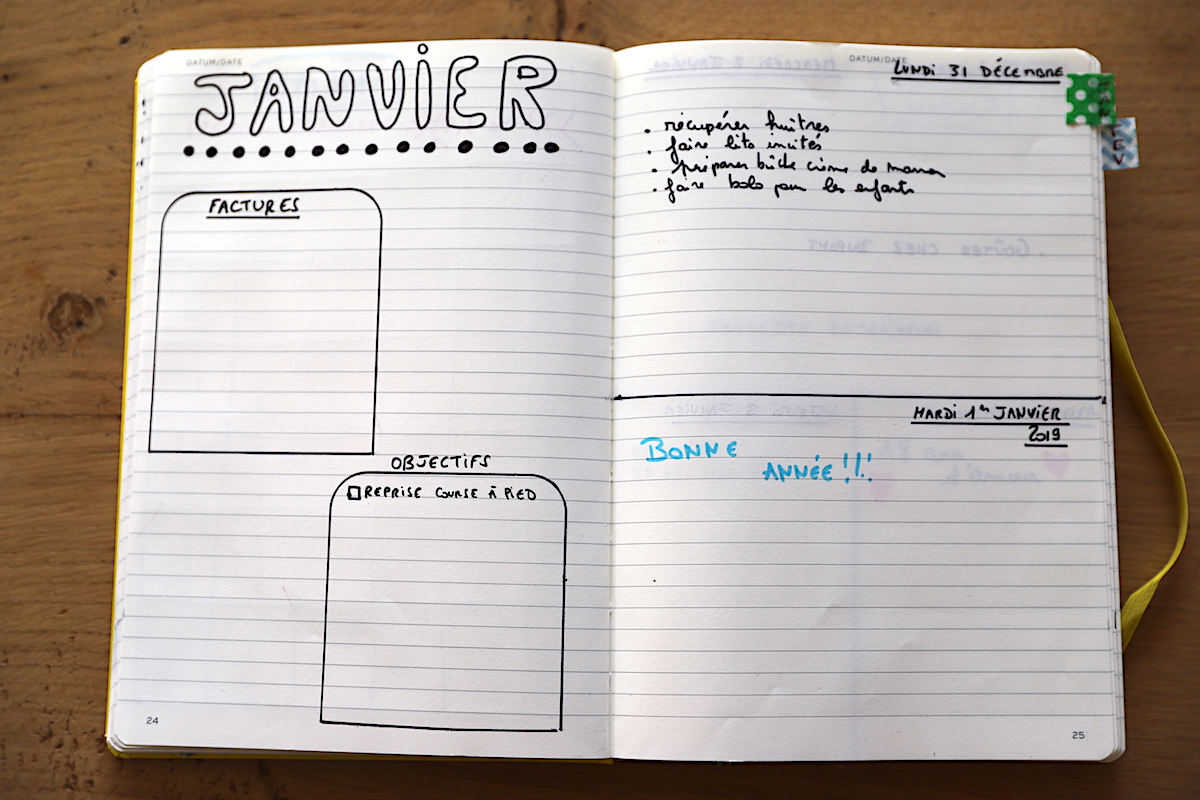 DATUM/DATE
JANVIER
FACTURES
OBJECTIFS
REPRISE COURSE À PIED
24
DATUM/DATE
LUNDI 31 DÉCEMBRE
• récupérer huîtres
• faire lits invités
• préparer bûche crème de marron
• faire bolo pour les enfants
MARDI 1er JANVIER
2019
BONNE
ANNÉE!!!
25